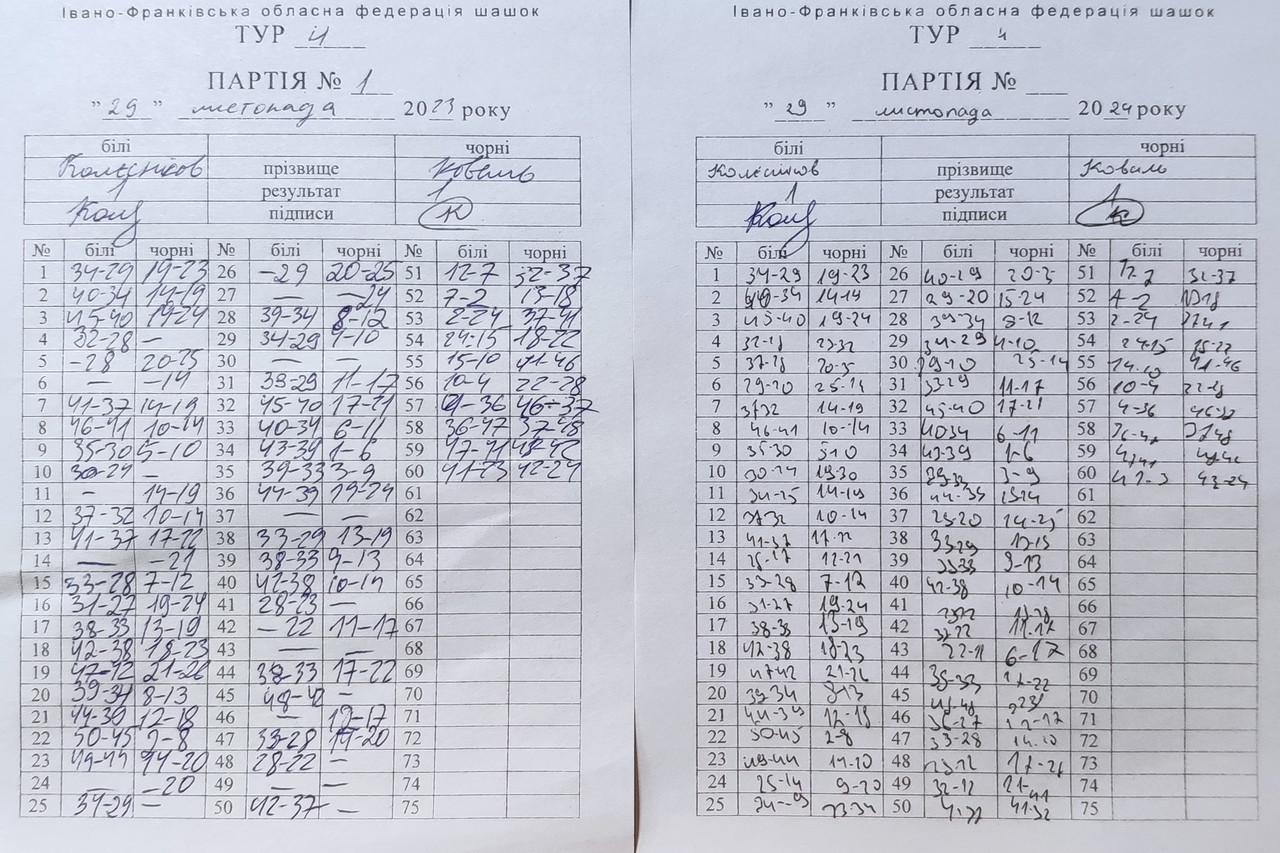 Івано-Франківська обласна федерація шашок
ТУР 4
ПАРТІЯ № 1
"29" листопада 2023 року
білі чорні
Колєсніков прізвище Коваль
1 результат 1
підписи
№ білі чорні № білі чорні № білі чорні
1 34-29 19-23 26 -29 20-25 51 12-7 32-37
2 40-34 14-19 27 — -24 52 7-2 13-18
3 45-40 19-24 28 39-34 8-12 53 2-24 37-41
4 32-28 — 29 34-29 4-10 54 24-15 18-22
5 -28 20-25 30 — — 55 15-10 41-46
6 — -14 31 39-29 11-17 56 10-4 22-28
7 41-37 14-19 32 45-40 17-21 57 46-37
8 46-41 10-14 33 40-34 6-11 58 36-47 37-48
9 35-30 5-10 34 43-39 1-6 59 47-41 48-42
10 30-24 — 35 39-33 3-9 60 42-24
11 — 14-19 36 44-39 19-24 61
12 37-32 10-14 37 — — 62
13 41-37 17-22 38 33-29 13-19 63
14 — -21 39 38-33 9-13 64
15 33-28 7-12 40 42-38 10-14 65
16 31-27 19-24 41 28-23 — 66
17 38-33 13-19 42 -22 11-17 67
18 42-38 18-23 43 — — 68
19 47-42 21-26 44 38-33 17-22 69
20 39-34 8-13 45 — 70
21 44-39 12-18 46 — 12-17 71
22 50-45 2-8 47 33-28 14-20 72
23 49-44 14-20 48 28-22 — 73
24 — -20 49 — — 74
25 34-29 — 50 42-37 — 75
Івано-Франківська обласна федерація шашок
ТУР 4
ПАРТІЯ №
"29" листопада 2024 року
білі чорні
Колєсніков прізвище Коваль
1 результат 1
підписи
№ білі чорні № білі чорні № білі чорні
1 34-29 19-23 26 40-29 20-25 51 32-37
2 40-34 14-19 27 29-20 15-24 52
3 45-40 19-24 28 39-34 8-12 53 2-24
4 32-28 23-32 29 34-29 4-10 54 24-15
5 37-28 30 29-20 25-14 55 41-46
6 29-20 25-14 31 33-29 11-17 56 10-4
7 14-19 32 45-40 17-21 57 4-36
8 46-41 10-14 33 40-34 6-11 58
9 35-30 5-10 34 43-39 1-6 59
10 30-24 19-30 35 39-33 3-9 60 42-24
11 14-19 36 61
12 10-14 37 25-20 14-25 62
13 41-37 38 33-29 63
14 39 9-13 64
15 33-28 7-12 40 42-38 10-14 65
16 31-27 19-24 41 66
17 38-33 13-19 42 11-17 67
18 42-38 18-23 43 22-11 6-17 68
19 47-42 21-26 44 38-33 17-22 69
20 39-34 8-13 45 70
21 12-18 46 12-17 71
22 50-45 2-8 47 33-28 72
23 49-44 14-20 48 73
24 25-14 9-20 49 74
25 23-34 50 75